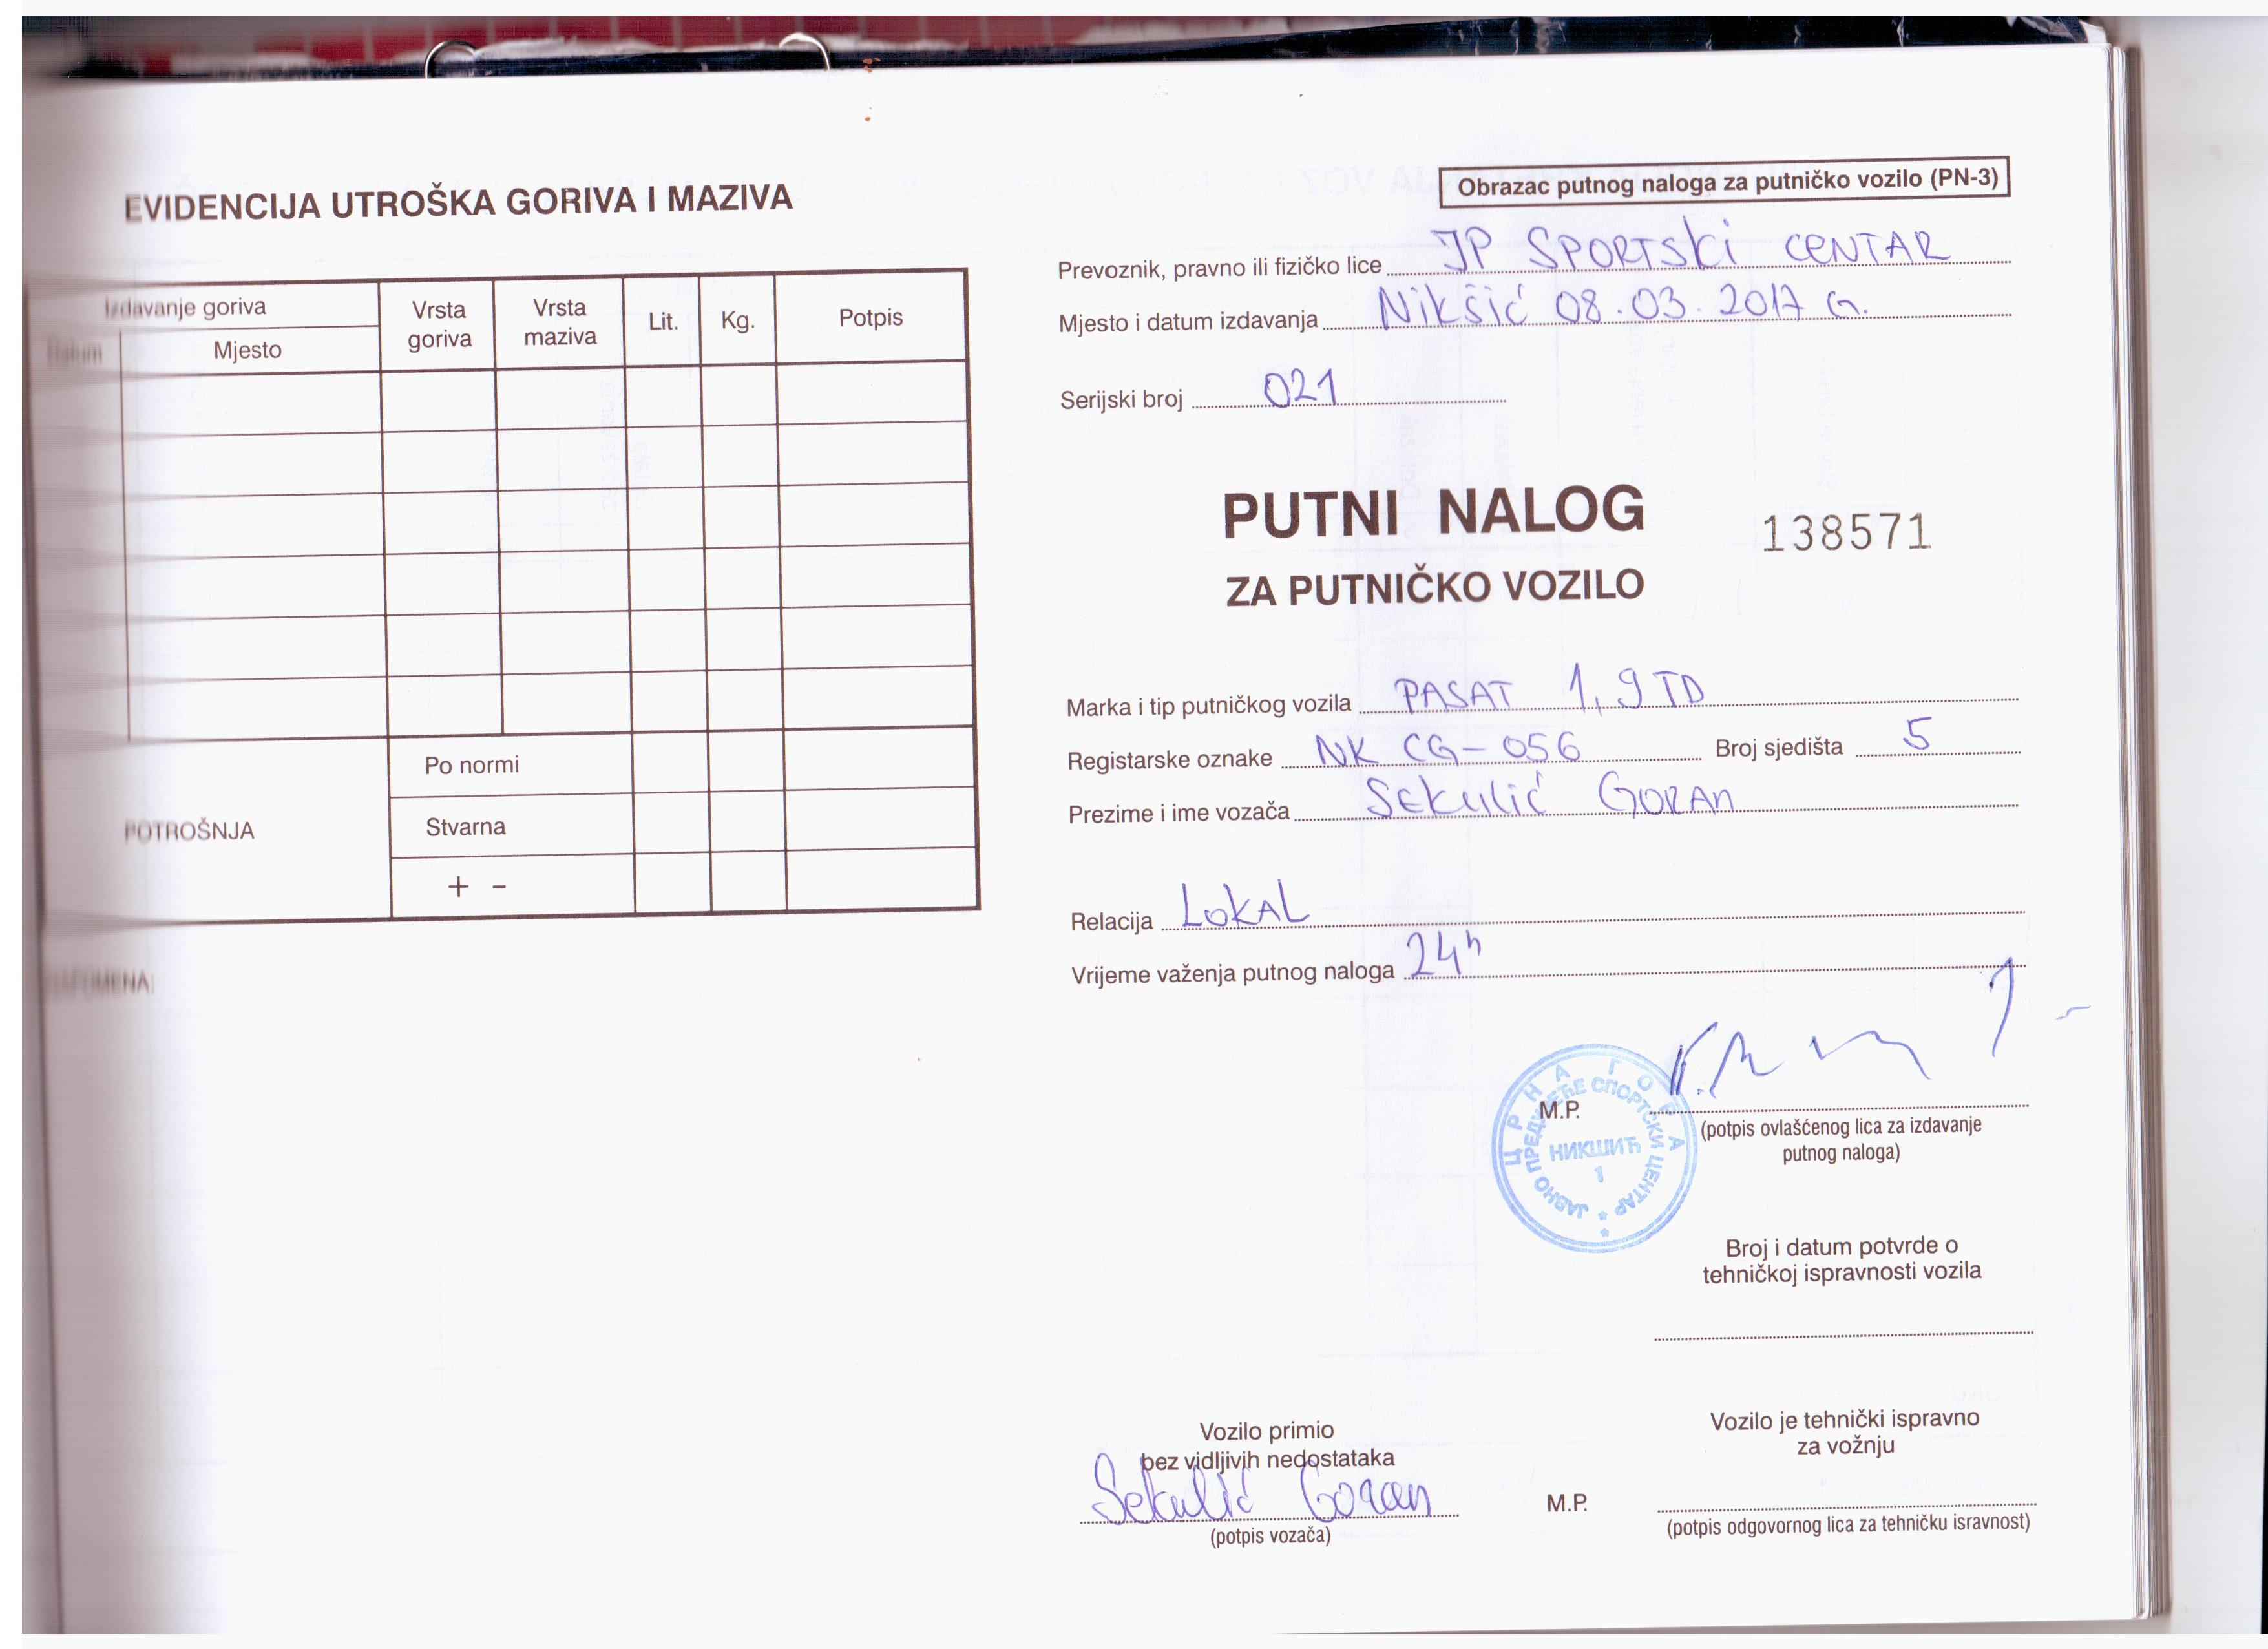 EVIDENCIJA UTROŠKA GORIVA I MAZIVA
Izdavanje goriva
Datum
Mjesto
Vrsta goriva
Vrsta maziva
Lit.
Kg.
Potpis
POTROŠNJA
Po normi
Stvarna
+ -
Obrazac putnog naloga za putničko vozilo (PN-3)
Prevoznik, pravno ili fizičko lice JP SPORTSKI CENTAR
Mjesto i datum izdavanja Nikšić 08.03.2017 G.
Serijski broj 021
PUTNI NALOG
138571
ZA PUTNIČKO VOZILO
Marka i tip putničkog vozila PASAT 1,9 TD
Registarske oznake NK CG-056 Broj sjedišta 5
Prezime i ime vozača Sekulić Goran
Relacija LOKAL
Vrijeme važenja putnog naloga 24h
M.P.
ЦРНА ГОРА
ЈАВНО ПРЕДУЗЕЋЕ СПОРТСКИ ЦЕНТАР
НИКШИЋ
1
(potpis ovlašćenog lica za izdavanje
putnog naloga)
Broj i datum potvrde o
tehničkoj ispravnosti vozila
Vozilo primio
bez vidljivih nedostataka
Sekulić Goran
(potpis vozača)
Vozilo je tehnički ispravno
za vožnju
M.P.
(potpis odgovornog lica za tehničku isravnost)